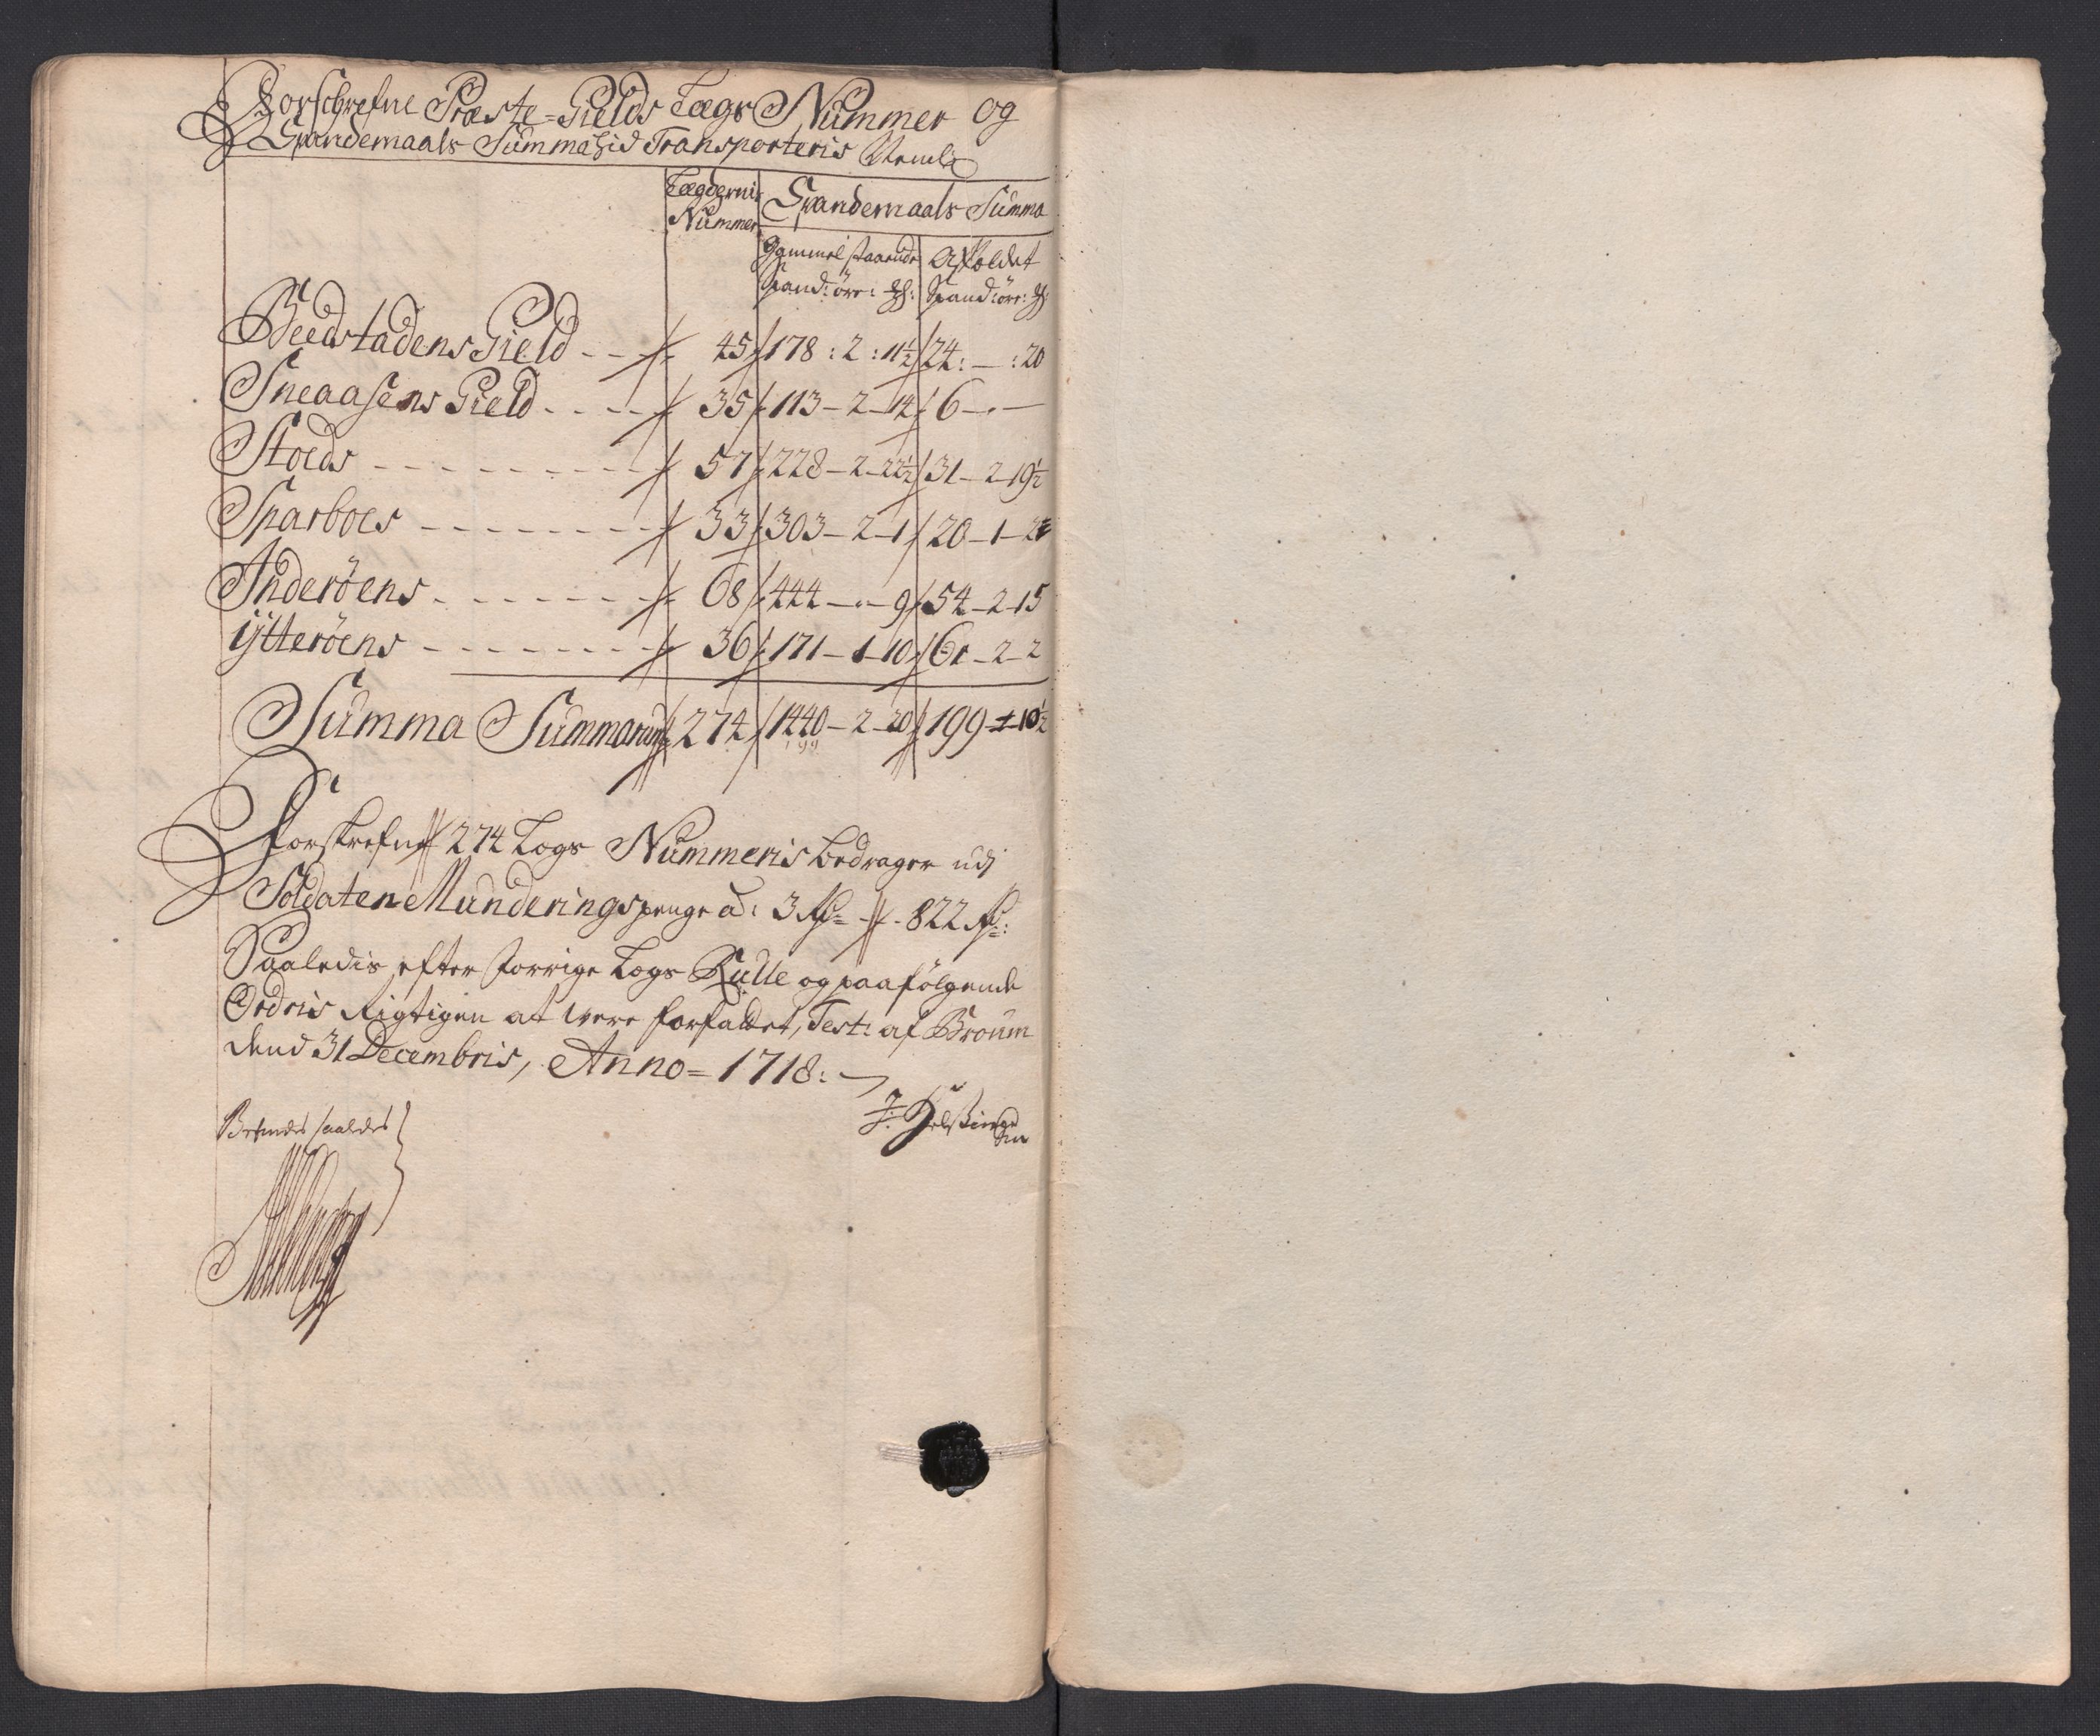 Forschrefne Præste-Gields Lægs Nummer og
Spandemaals Summa hid Transporteris Nemlig
Lægdernis Nummer
Spandemaals Summa
Gammel staaende Spand: öre: Afkoldet Spand: öre:
Beedstadens Gield - - 45 178 : 2 : 11½ 24 : — : 20
Sneaasens Gield - - - - 35 113 - 2 - 14 6 - -
Stoeds - - - - - - - - 57 228 - 2 - 22½ 31 - 2 - 19½
Sparboes - - - - - - - 33 303 - 2 - 1 20 - 1 - 2
Inderöens - - - - - - 68 444 - - 9 54 - 2 - 15
Ÿtteröens - - - - - - - 36 171 - 1 - 10 61 - 2 - 2
Summa Summarum 274 1440 - 2 - 20 199 - 10½
199
Forskrefne 274 Lægs Nummeris bedrager udi
Soldaten Munderings penge a: 3 Rd = 822 Rd:
Saaledis efter forrige Lægs Rulle og paafölgende
Ordris Rigtigen at were forfaldet, Test: af Broum
dend 31 Decembris, Anno = 1718:
Befindes saaledes